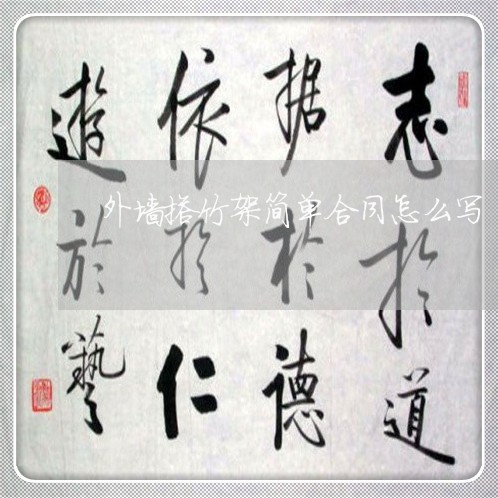 志於道
据於德
依於仁
遊於藝
外墙搭竹架简单合同怎么写